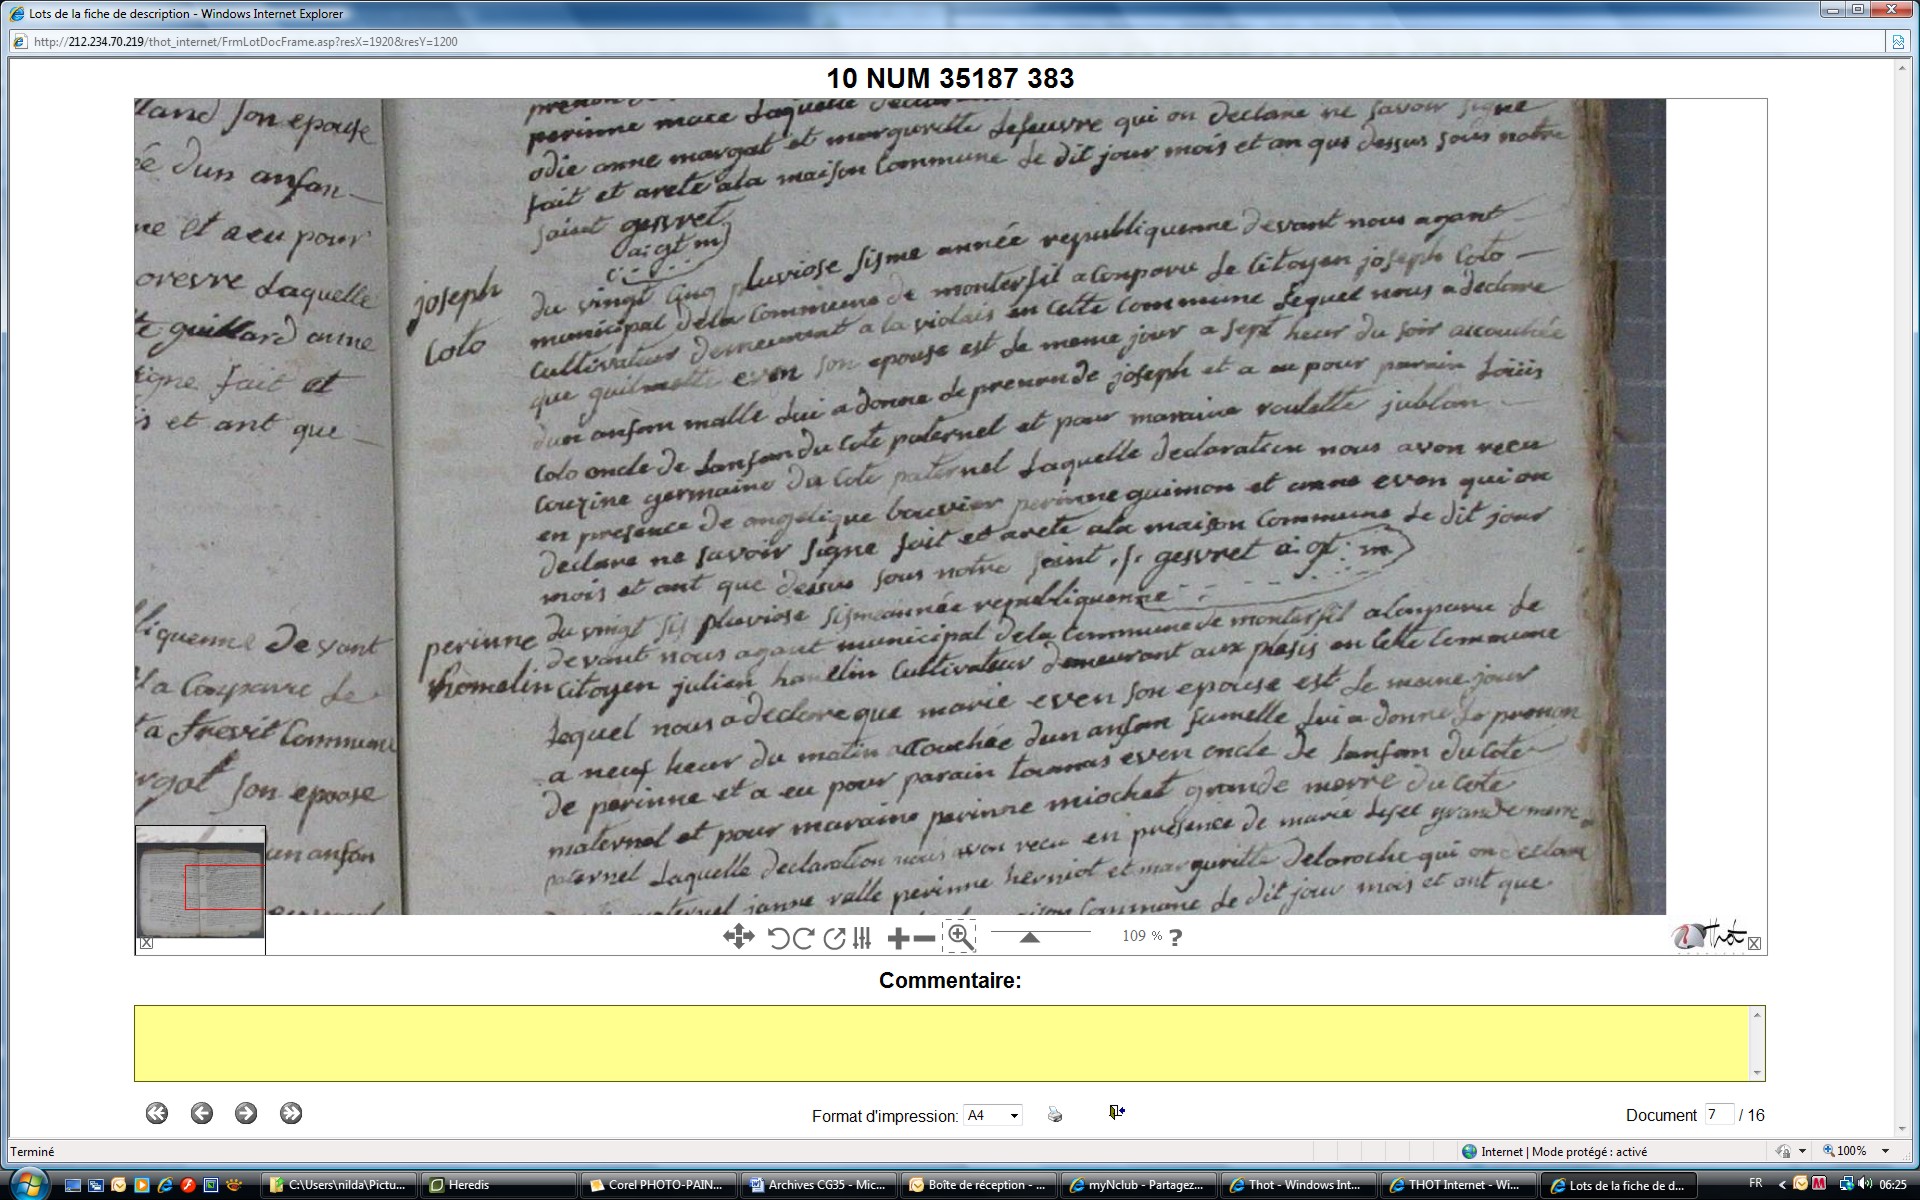 Lots de la fiche de description - Windows Internet Explorer
http://212.234.70.219/thot_internet/FrmLotDocFrame.asp?resX=1920&resY=1200
10 NUM 35187 383
land son epouse
dun anfan
et a eu pour
Laquelle
guillard anne
signe fait et
et ant que
liquenne devant
a Conparu Le
a frevit Commune
son epouse
un anfan
perinne mace Laquelle
odie anne margat et margueritte Lefeuvre qui on declare ne savoir signe
fait et arete ala maison Commune Le dit jour mois et an que dessus sous notre
saint gesvret
a: gt m
joseph
Colo
du vingt Cinq pluviose sisme année republiquenne devant nous agant
municipal dela Commune de monterfil a Conparu Le Citoyen joseph Colo
Cultivateur demeurant a la violais en Cette Commune Lequel nous a declare
que guilmette even son epouse est Le meme jour a sept heur du soir accouchée
dun anfan malle Lui a donne Le prenon de joseph et a eu pour parain Loüis
Colo oncle de Lanfan du Cote paternel et pour maraine roulette jublan
Couzine germaine du Cote paternel Laquelle declaration nous avon recu
en presence de angelique bouvier perinne guimon et anne even qui on
declare ne savoir signe fait et arete ala maison Commune Le dit jour
mois et ant que dessus sous notre saint .f. gesvret a: gt: m
perinne
homelin
du vingt sis pluviose sisme année republiquenne
devant nous agant municipal dela Commune de monterfil a Conparu Le
Citoyen julien hamelin Cultivateur demeurant aux plesis en Cette Commune
Lequel nous a declare que marie even son epouse est Le meme jour
a neuf heur du matin accouchée dun anfan fumelle Lui a donne Le prenon
de perinne et a eu pour parain toumas even oncle de Lanfan du Cote
maternel et pour maraine perinne miochet grande merre du Cote
paternel Laquelle declaration nous avon recu en presence de marie Lefee grande merre
maternel janne valle perinne herniot et margueritte delaroche qui on declare
maison Commune Le dit jour mois et ant que
109 % ?
Thot
Commentaire:
Format d'impression: A4
Document 7 / 16
Terminé
Internet | Mode protégé : activé
100%
C:\Users\nilda\Pictu...
Heredis
Corel PHOTO-PAIN...
Archives CG35 - Mic...
Boîte de réception - ...
myNclub - Partagez...
Thot - Windows Int...
THOT Internet - Wi...
Lots de la fiche de d...
FR
06:25